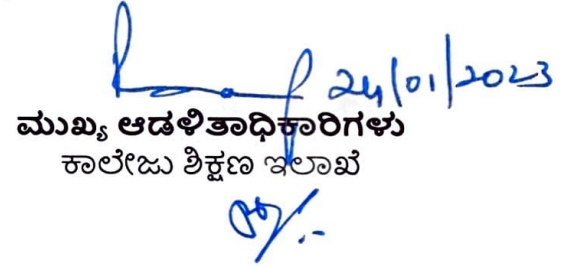 24/01/2023
ಮುಖ್ಯ ಆಡಳಿತಾಧಿಕಾರಿಗಳು
ಕಾಲೇಜು ಶಿಕ್ಷಣ ಇಲಾಖೆ